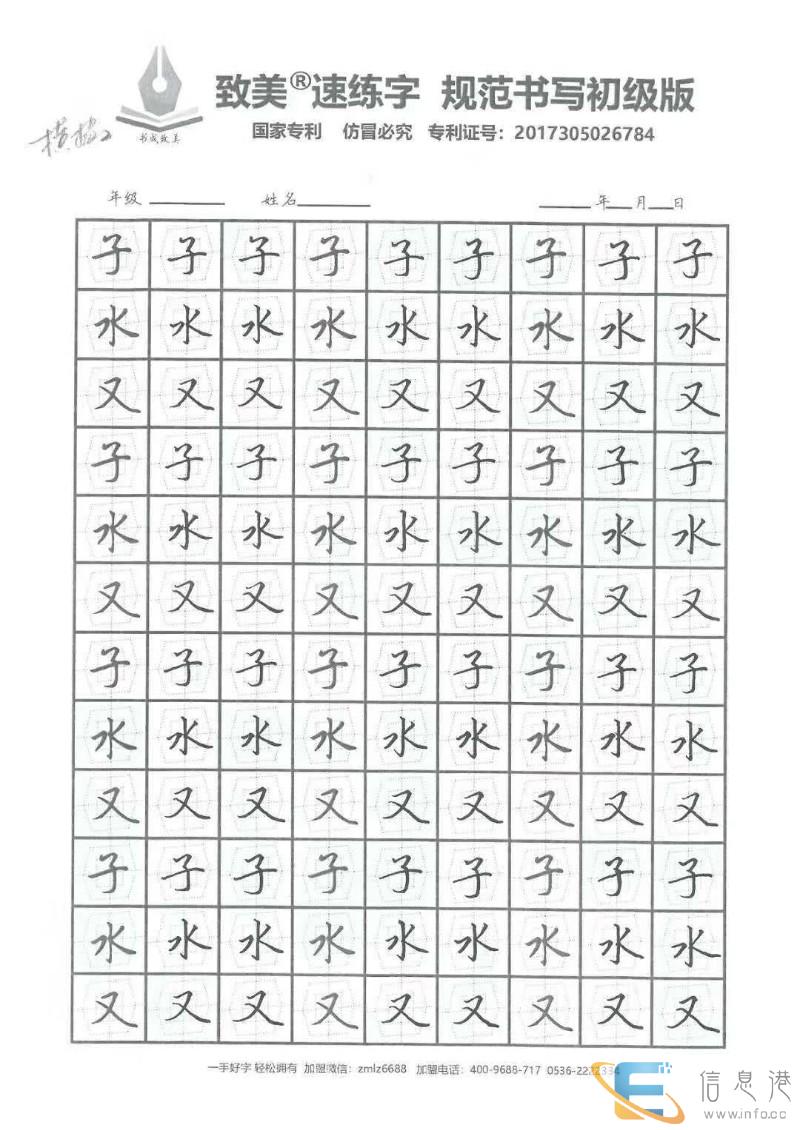 致美®速练字 规范书写初级版
国家专利 仿冒必究 专利证号：2017305026784
书成致美
年级 姓名 年 月 日
子 子 子 子 子 子 子 子 子
水 水 水 水 水 水 水 水 水
又 又 又 又 又 又 又 又 又
子 子 子 子 子 子 子 子 子
水 水 水 水 水 水 水 水 水
又 又 又 又 又 又 又 又 又
子 子 子 子 子 子 子 子 子
水 水 水 水 水 水 水 水 水
又 又 又 又 又 又 又 又 又
子 子 子 子 子 子 子 子 子
水 水 水 水 水 水 水 水 水
又 又 又 又 又 又 又 又 又
一手好字 轻松拥有 加盟微信：zmlz6688 加盟电话：400-9688-717 0536-2222334
信息港
www.info.cc